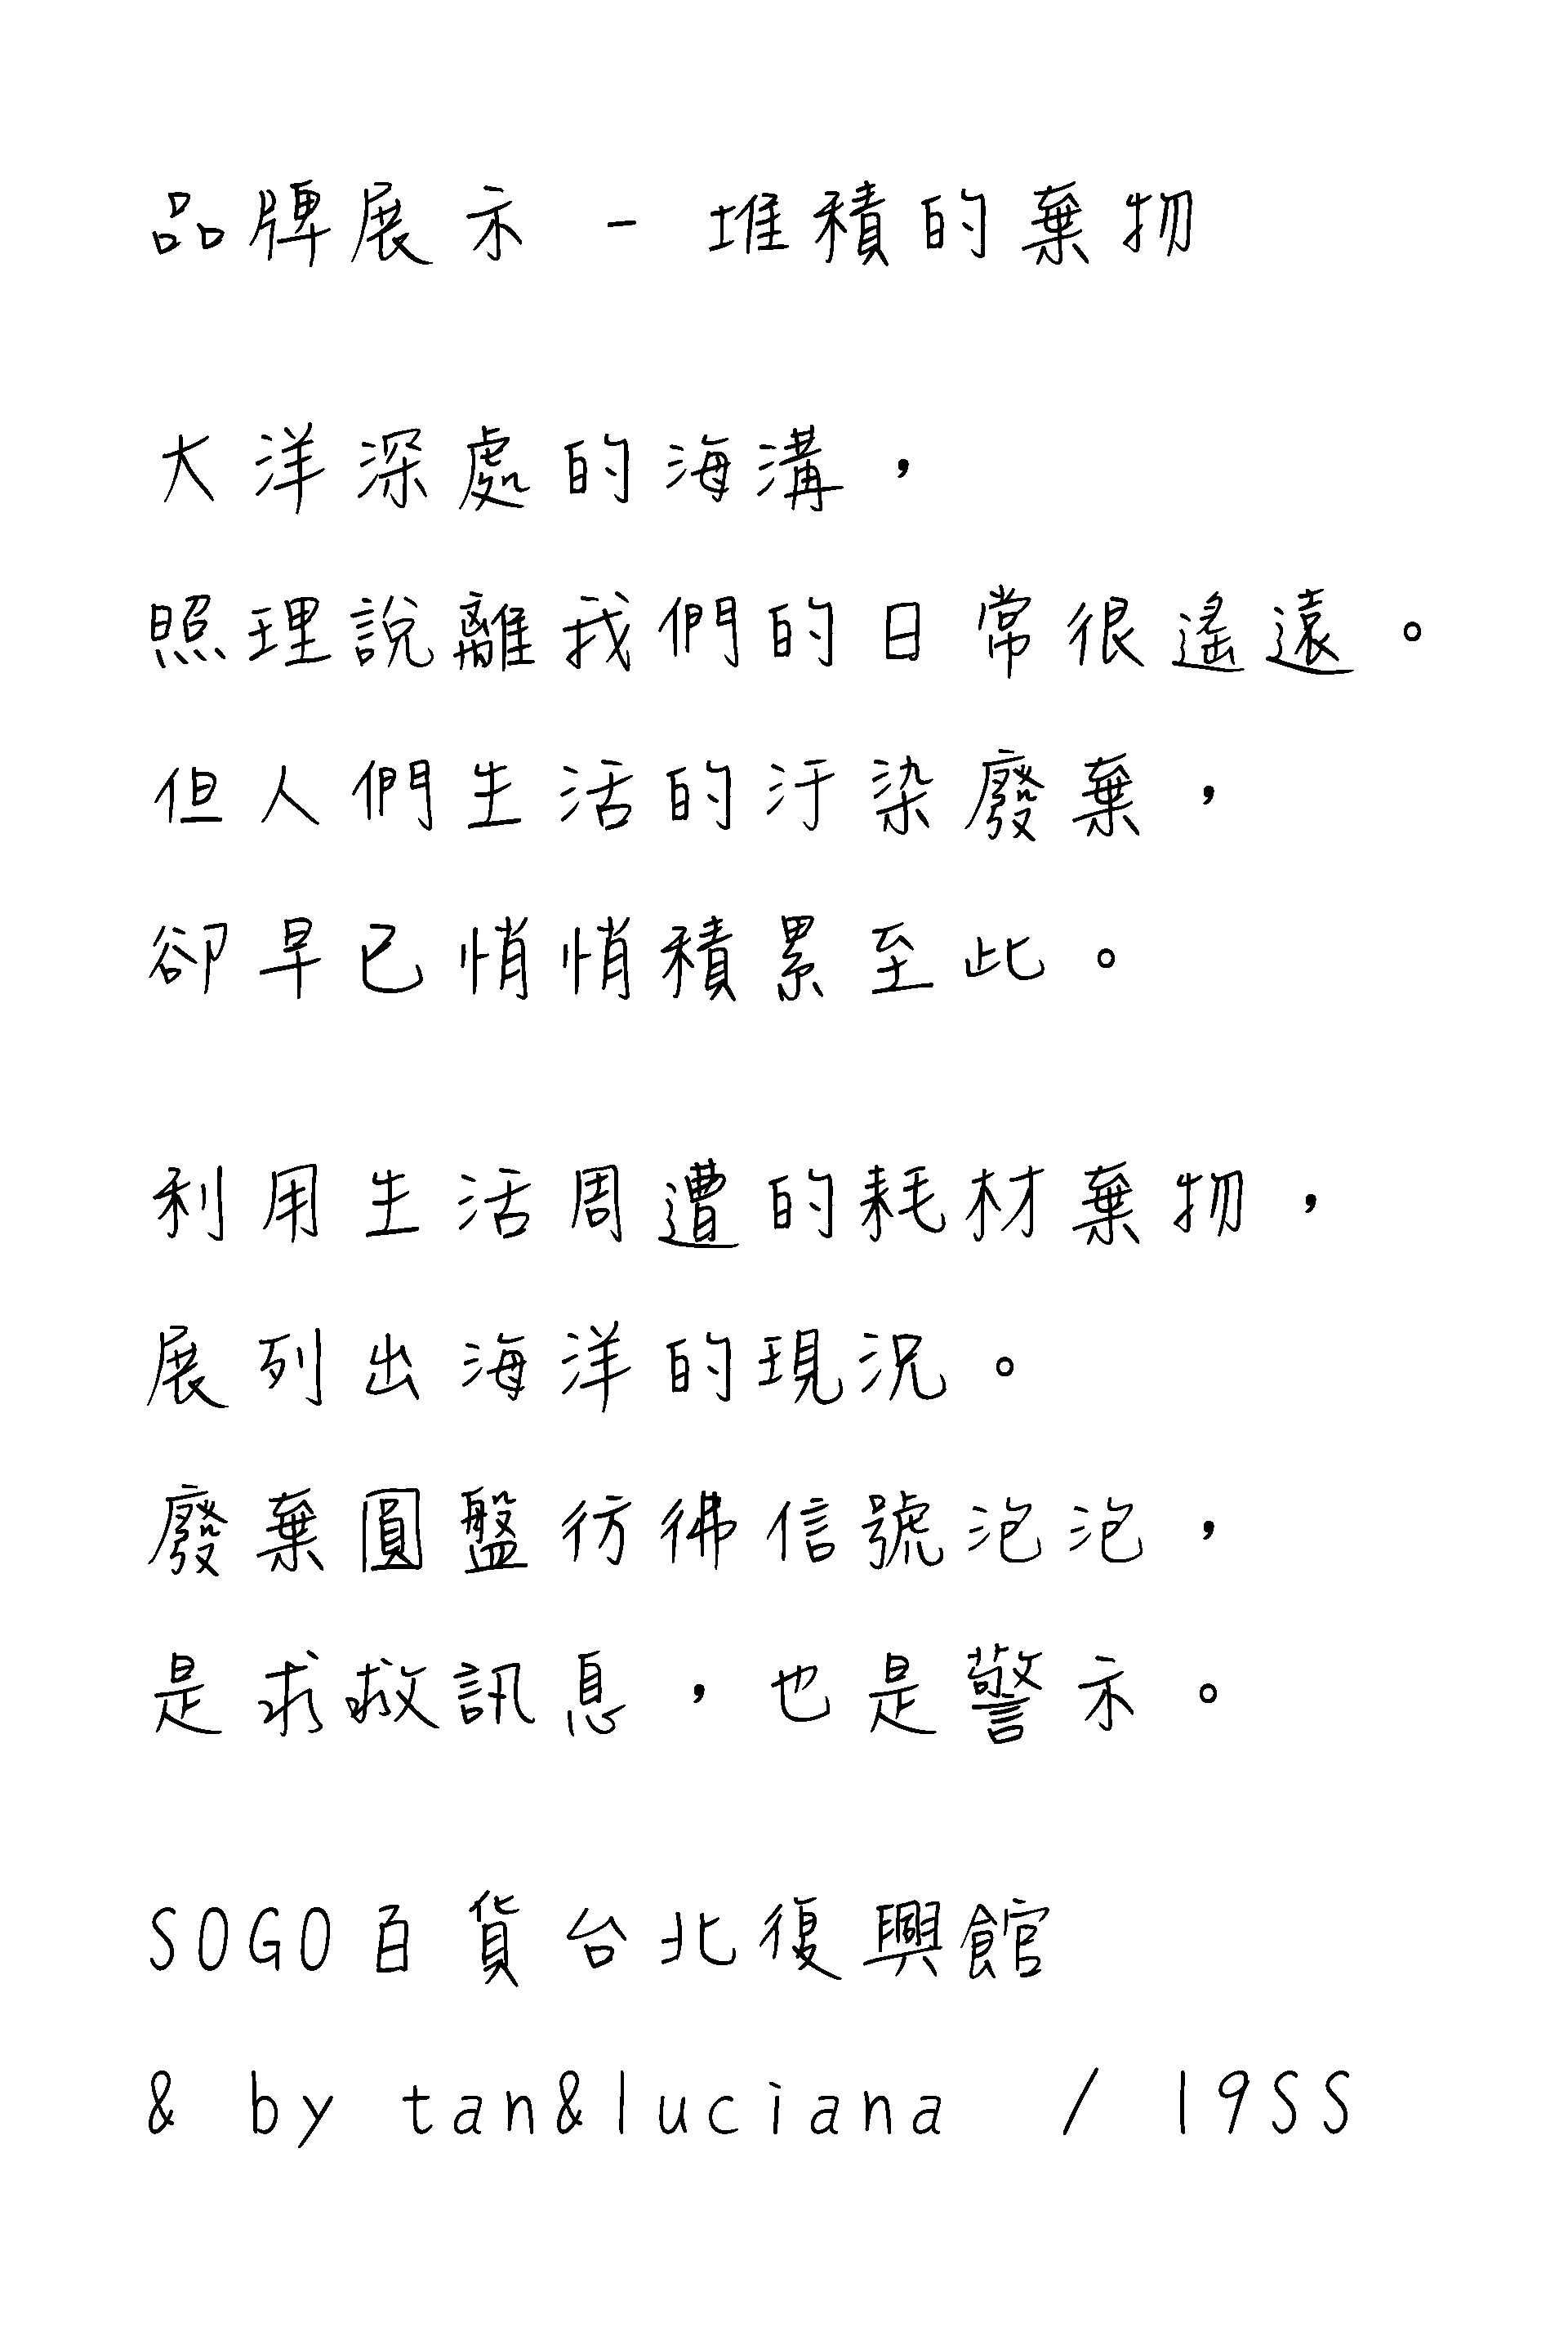 品牌展示 - 堆積的棄物
大洋深處的海溝，
照理說離我們的日常很遙遠。
但人們生活的汙染廢棄，
卻早已悄悄積累至此。
利用生活周遭的耗材棄物，
展列出海洋的現況。
廢棄圓盤彷彿信號泡泡，
是求救訊息，也是警示。
SOGO百貨台北復興館
& by tan&luciana / 19SS